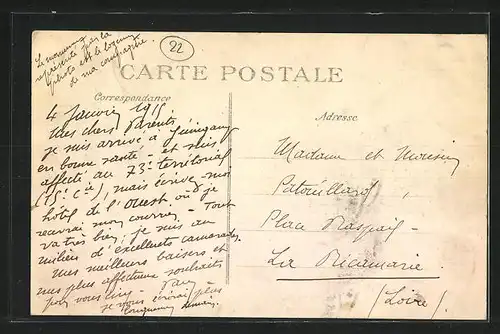 Le monument
représenté par la
photo est le logement
de ma compagnie.
22
CARTE POSTALE
Correspondance
Adresse
4 Janvier 1915
Mes chers Parents,
je suis arrivé à Guingamp
en bonne santé et suis
affecté au 73e territorial
(15e Cie), mais écrivez moi
hôtel de l'Ouest où je
recevrai mon courrier. Tout
va très bien, je suis au
milieu d'excellents camarades.
Mes meilleurs baisers et
mes plus affectueux souhaits
pour vous cinq
je vous écrirai plus
longuement demain.
Madame et Monsieur
Patouillard
Place Raspail
La Ricamarie
(Loire)